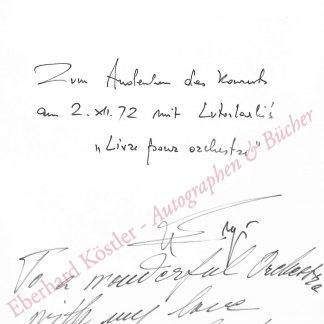 Zum Andenken des Konzerts
am 2. XII. 72 mit Lutosławski's
"Livre pour orchestre"
To a wonderful Orchestra
with my love
Eberhard Köstler - Autographen & Bücher